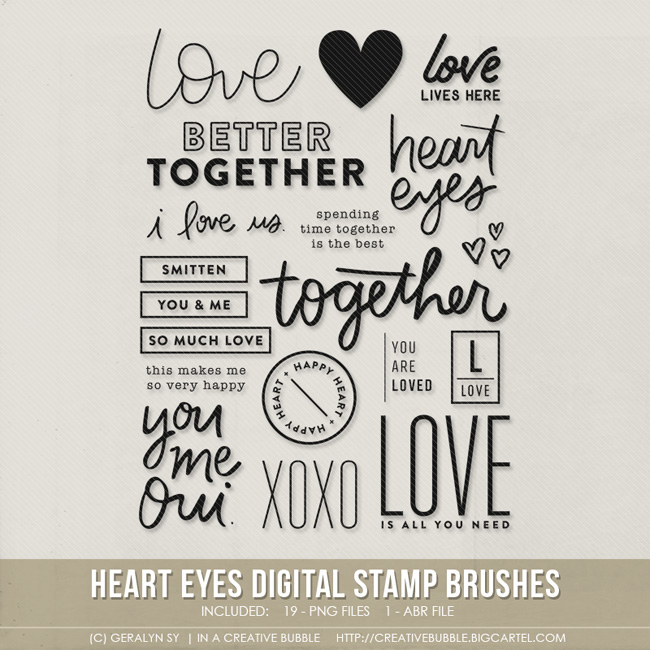 love
love
LIVES HERE
BETTER
TOGETHER
heart
eyes
i love us.
spending
time together
is the best
SMITTEN
YOU & ME
SO MUCH LOVE
together
YOU
ARE
LOVED
L
LOVE
this makes me
so very happy
HAPPY HEART + HAPPY HEART + HAPPY HEART +
you
me
oui.
XOXO
LOVE
IS ALL YOU NEED
HEART EYES DIGITAL STAMP BRUSHES
INCLUDED: 19 - PNG FILES 1 - ABR FILE
(C) GERALYN SY | IN A CREATIVE BUBBLE HTTP://CREATIVEBUBBLE.BIGCARTEL.COM